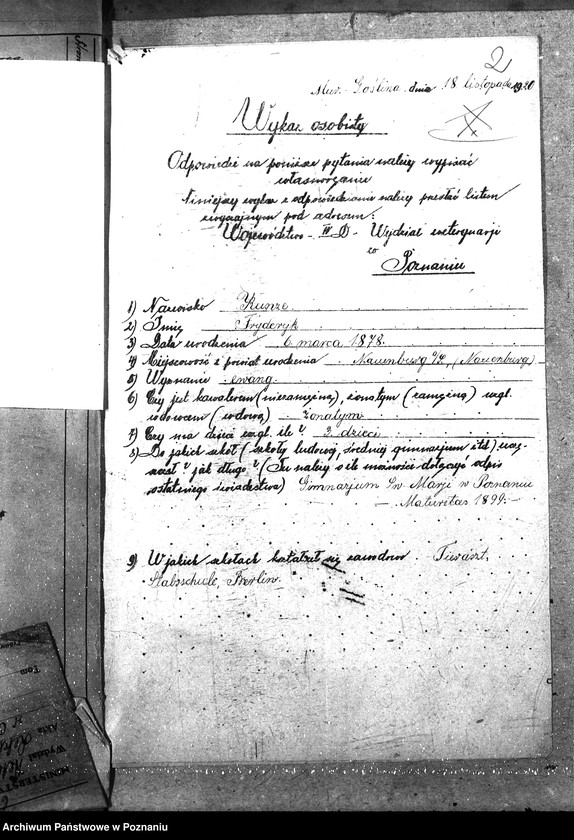 2
Mur. Goślina dnia 18 listopada 1920
Wykaz osobisty
Odpowiedzi na poniższe pytania należy wypisać
własnoręcznie
Niniejszy wykaz z odpowiedziami należy przesłać listem
zwyczajnym pod adresem:
Województwo - IV D - Wydział weterynarji
w
Poznaniu
1) Nazwisko Kunze
2) Imię Fryderyk
3) Data urodzenia 6 marca 1878.
4) Miejscowość i powiat urodzenia Nauenburg (Nauenburg)
5) Wyznanie ewang.
6) Czy jest kawalerem (niezamężną), żonatym (zamężną) wzgl.
wdowcem (wdową) - żonatym
7) Czy ma dzieci wzgl. ile? 3 dzieci
8) Do jakich szkół (szkoły ludowej, średniej gimnazjum itd) uczęszczał? jak długo? (Tu należy o ile możności dołączyć odpis
ostatniego świadectwa) Gimnazjum Św. Marji w Poznaniu
- Maturitas 1899.-
9) W jakich szkołach kształcił się zawodowo Tierärzt.
Stabsschule, Berlin.
Tom
Akta
Wydział
MINISTERST
Archiwum Państwowe w Poznaniu